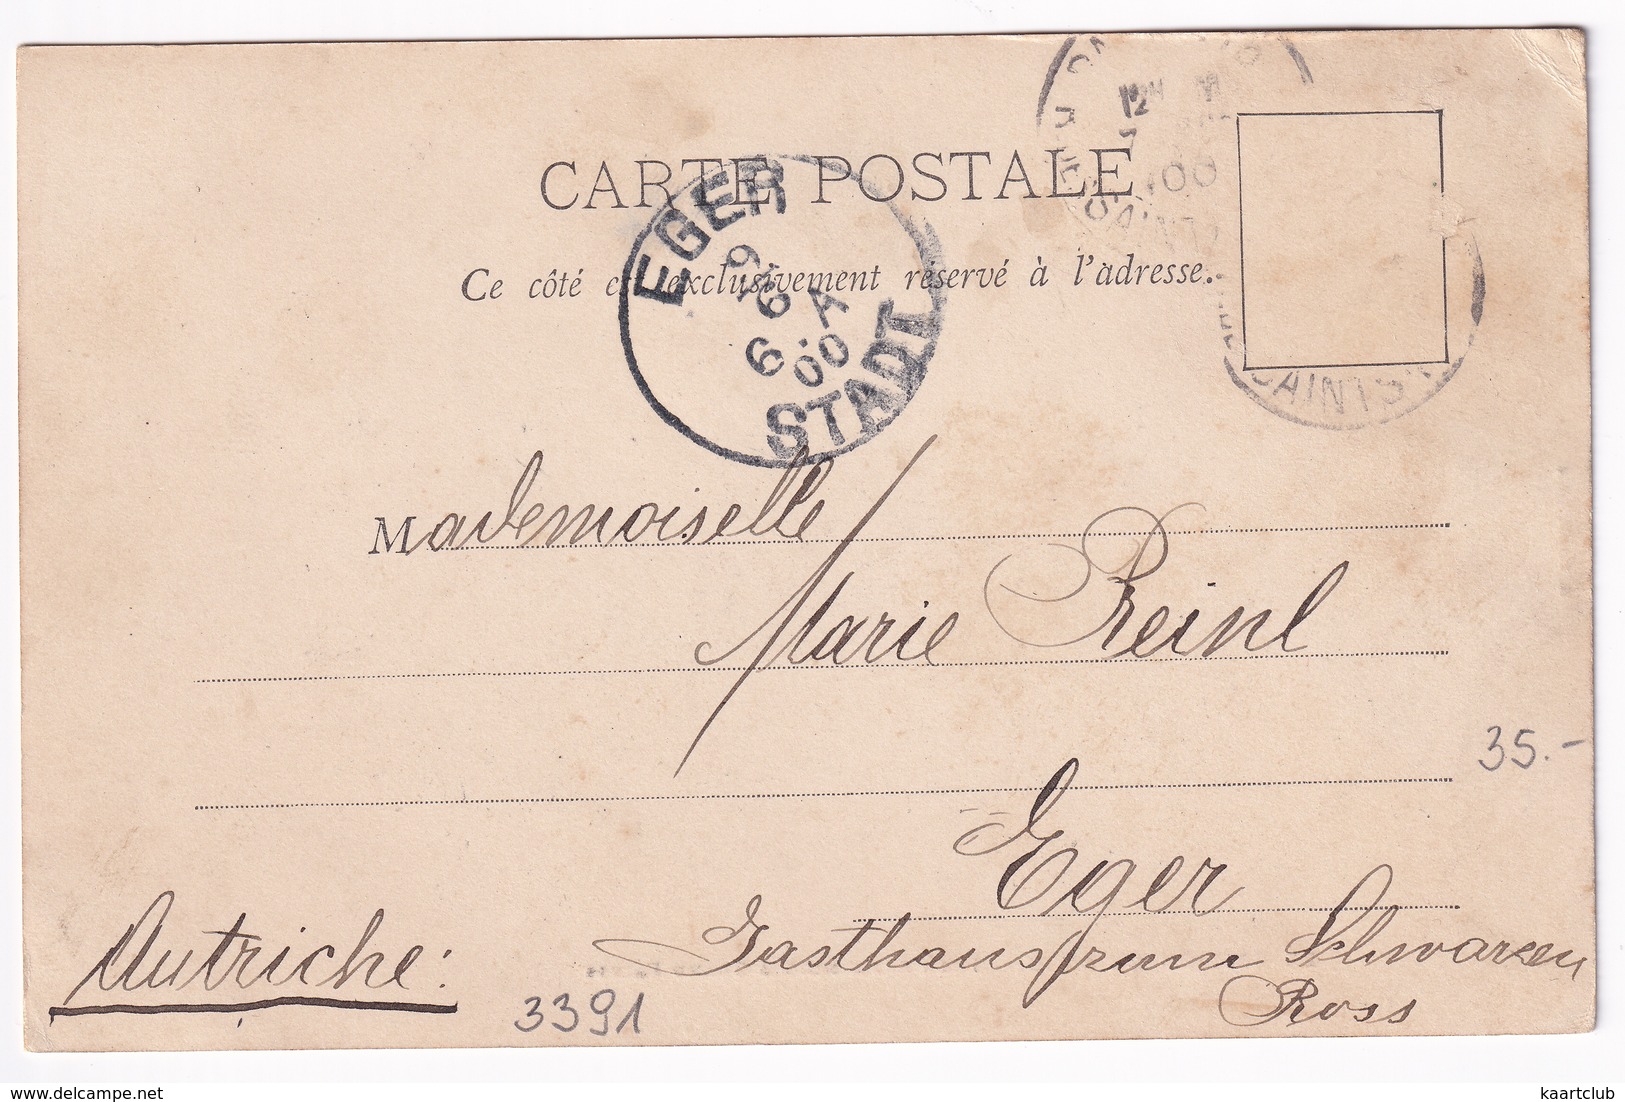 CARTE POSTALE
Ce côté est exclusivement réservé à l'adresse.
EGER
6 6
00
STADT
12
00
SAINTS
Mademoiselle
Marie Reinl
35.-
Eger
Autriche:
Gasthaus zum Schwarzen
Ross
3391
kaartclub